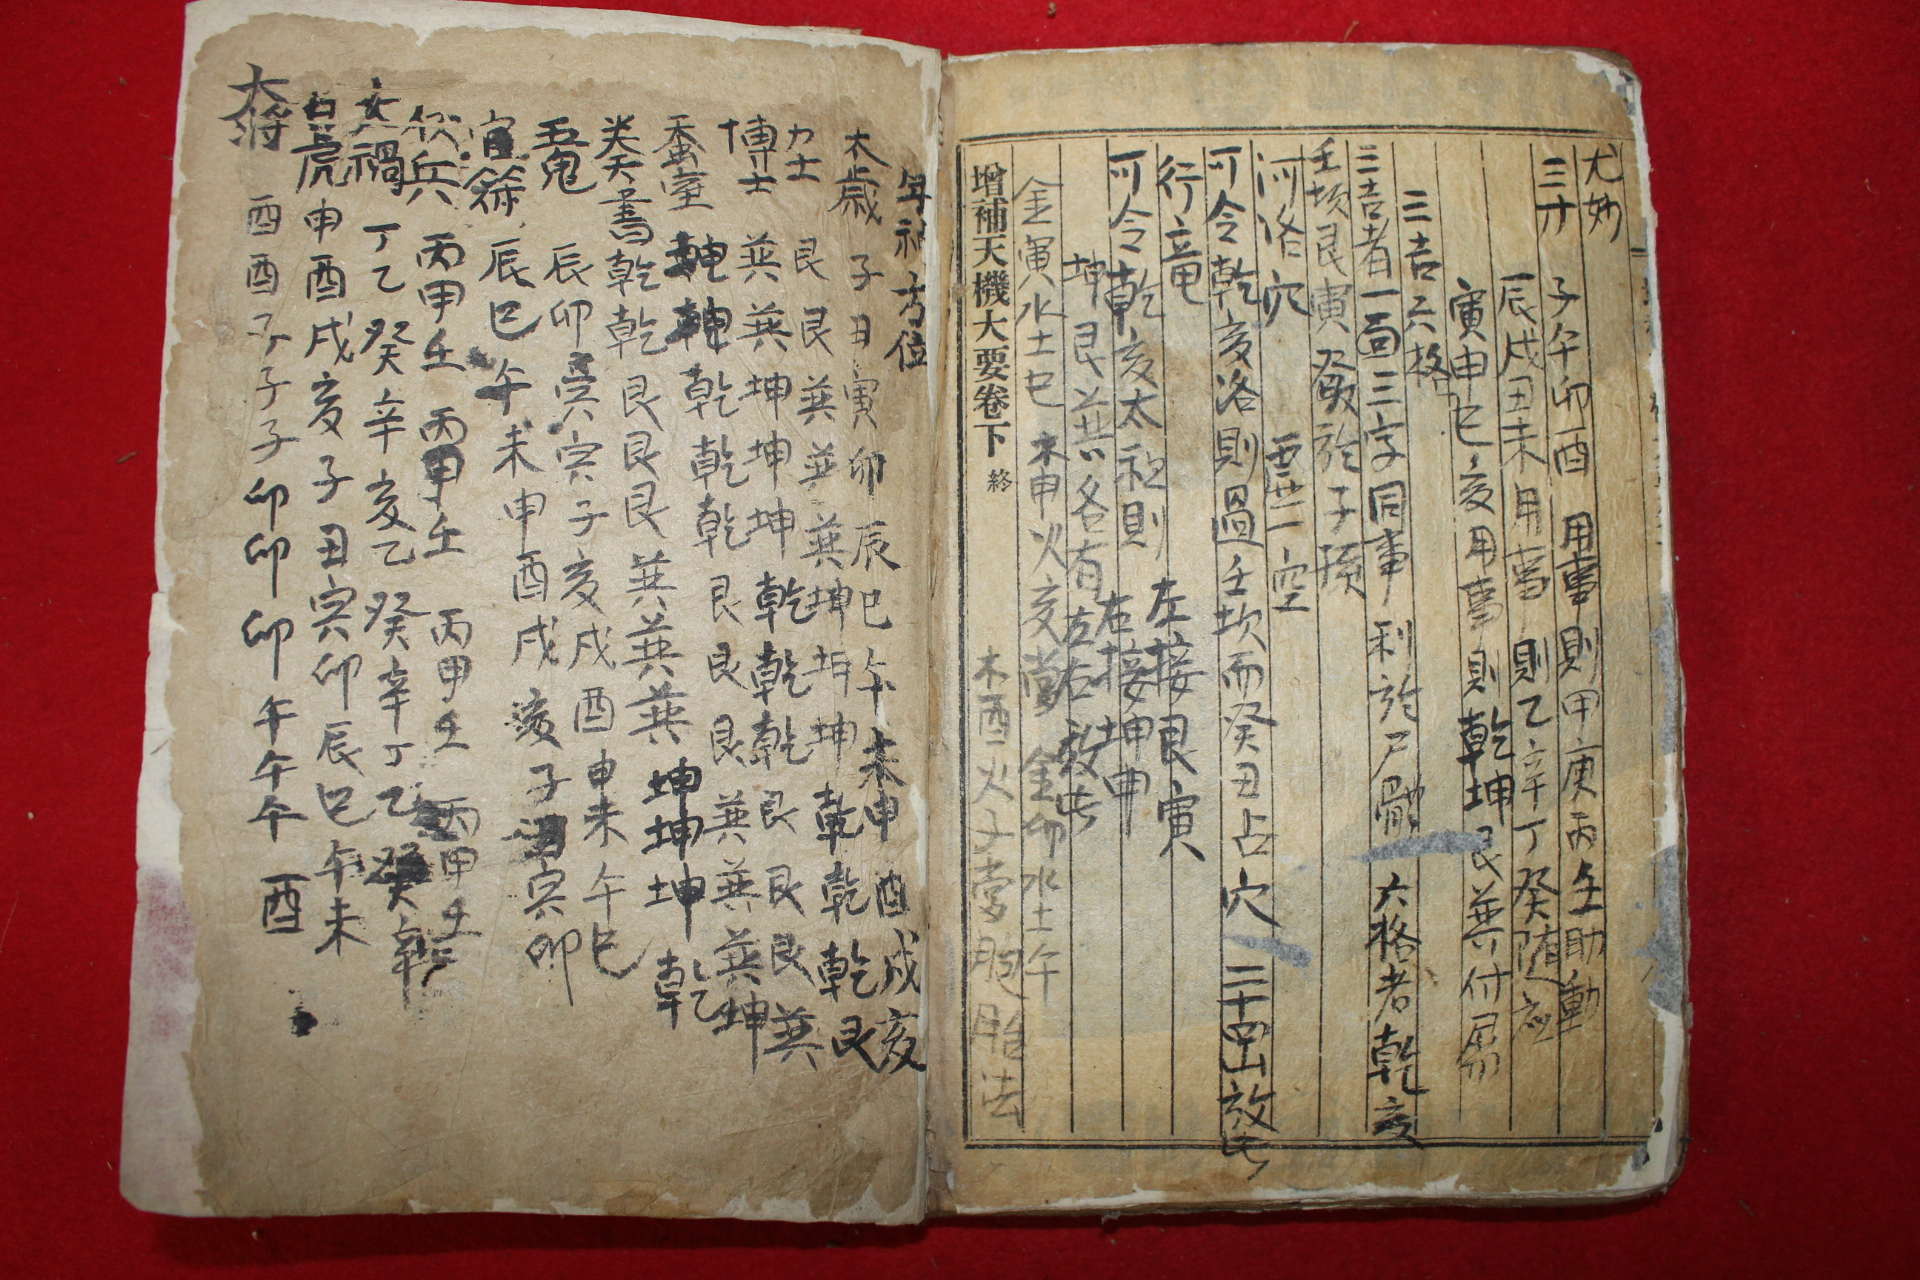 尤妙
三才 子午卯酉 用事則甲庚丙壬助動
辰戌丑未用事 則乙辛丁癸随應
寅申巳亥用事則 乾坤艮巽付屬
三吉六格
三吉者一面三字同事 利於尸體 六格者乾亥
壬坎艮寅 發於子孫
河洛穴 要世一空
可令乾亥洛則過壬坎而癸丑占穴 二十四山放此
行竜 左接艮寅
可令乾亥太祖則 右接坤申
坤艮巽各有左右放此
金寅水土巳 木申火亥當 金卯水土午
增補天機大要卷下 終
木酉火子當胞胎法
年神方位
太歲 子丑寅卯辰巳午未申酉戌亥
力士 艮艮巽巽巽坤坤坤乾乾乾艮
博士 巽巽坤坤坤乾乾乾艮艮艮巽
蚕室 坤坤乾乾乾艮艮艮巽巽巽坤
奏書 乾乾艮艮艮巽巽巽坤坤坤乾
五鬼 辰卯寅丑子亥戌酉申未午巳
官符 辰巳午未申酉戌亥子丑寅卯
伏兵 丙甲壬 丙甲壬 丙甲壬 丙甲壬
灾禍 丁乙癸辛亥乙癸辛丁乙癸辛
白虎 申酉戌亥子丑寅卯辰巳午未
大將 酉酉子子子卯卯卯午午午酉